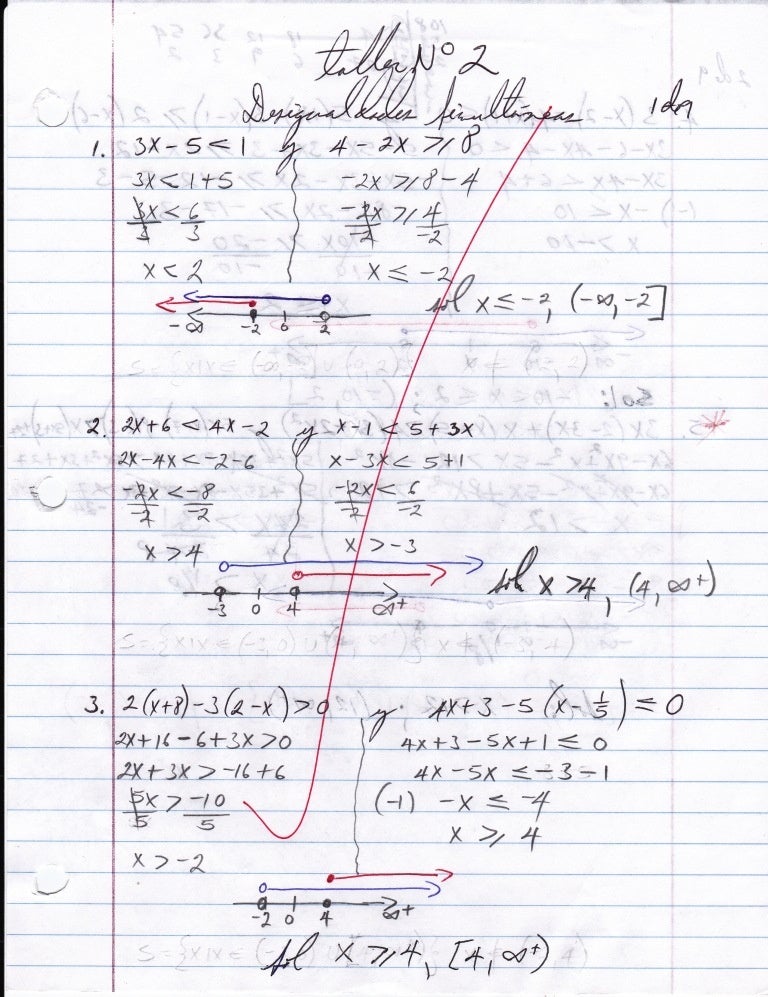 taller Nº 2
Desigualdades Simultáneas 1 de 9
1. 3x - 5 < 1 y 4 - 2x ≥ 8
3x < 1 + 5 -2x ≥ 8 - 4
3x/3 < 6/3 -2x/-2 ≥ 4/-2
x < 2 x ≤ -2
sol x ≤ -2, (-∞, -2]
-∞ -2 0 2
2. 2x + 6 < 4x - 2 y x - 1 < 5 + 3x
2x - 4x < -2 - 6 x - 3x < 5 + 1
-2x/-2 < -8/-2 -2x/-2 < 6/-2
x > 4 x > -3
sol x > 4, (4, ∞+)
-3 0 4 ∞+
3. 2(x+8) - 3(2-x) > 0 y 4x + 3 - 5(x - 1/5) ≤ 0
2x + 16 - 6 + 3x > 0 4x + 3 - 5x + 1 ≤ 0
2x + 3x > -16 + 6 4x - 5x ≤ -3 - 1
5x/5 > -10/5 (-1) -x ≤ -4
x ≥ 4
x > -2
-2 0 4 ∞+
sol x ≥ 4, [4, ∞+)